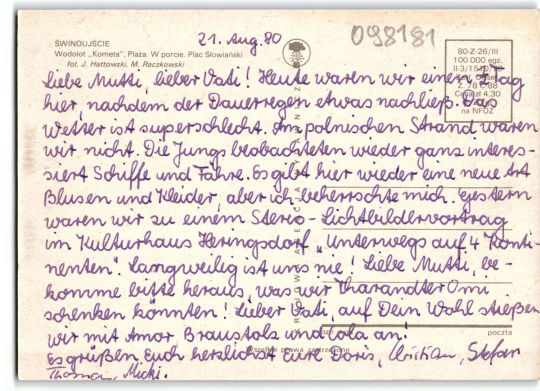 ŚWINOUJŚCIE
Wodolot „Kometa”, Plaża. W porcie. Plac Słowiański
fot. J. Hattowski, M. Raczkowski
21. Aug. 80
098181
80-Z-26/III
100 000 egz.
Cena 4.30
na NFOZ
Liebe Mutti, lieber Vati! Heute waren wir einen Tag
hier, nachdem der Dauerregen etwas nachließ. Das
Wetter ist superschlecht. Am polnischen Strand waren
wir nicht. Die Jungs beobachteten wieder ganz interes-
siert Schiffe und Fähre. Es gibt hier wieder eine neue Art
Blusen und Kleider, aber ich beherrschte mich. Gestern
waren wir zu einem Stereo-Lichtbildervortrag
im Kulturhaus Heringsdorf „Unterwegs auf 4 Konti-
nenten“. Langweilig ist uns nie! Liebe Mutti, be-
komme bitte heraus, was wir Tharandter Omi
schenken könnten! Lieber Vati, auf Dein Wohl stießen
wir mit Amor Braustolz und Cola an.
poczta
Es grüßen Euch herzlichst Eure Doris, Christian, Stefan
Thomas, Micki.